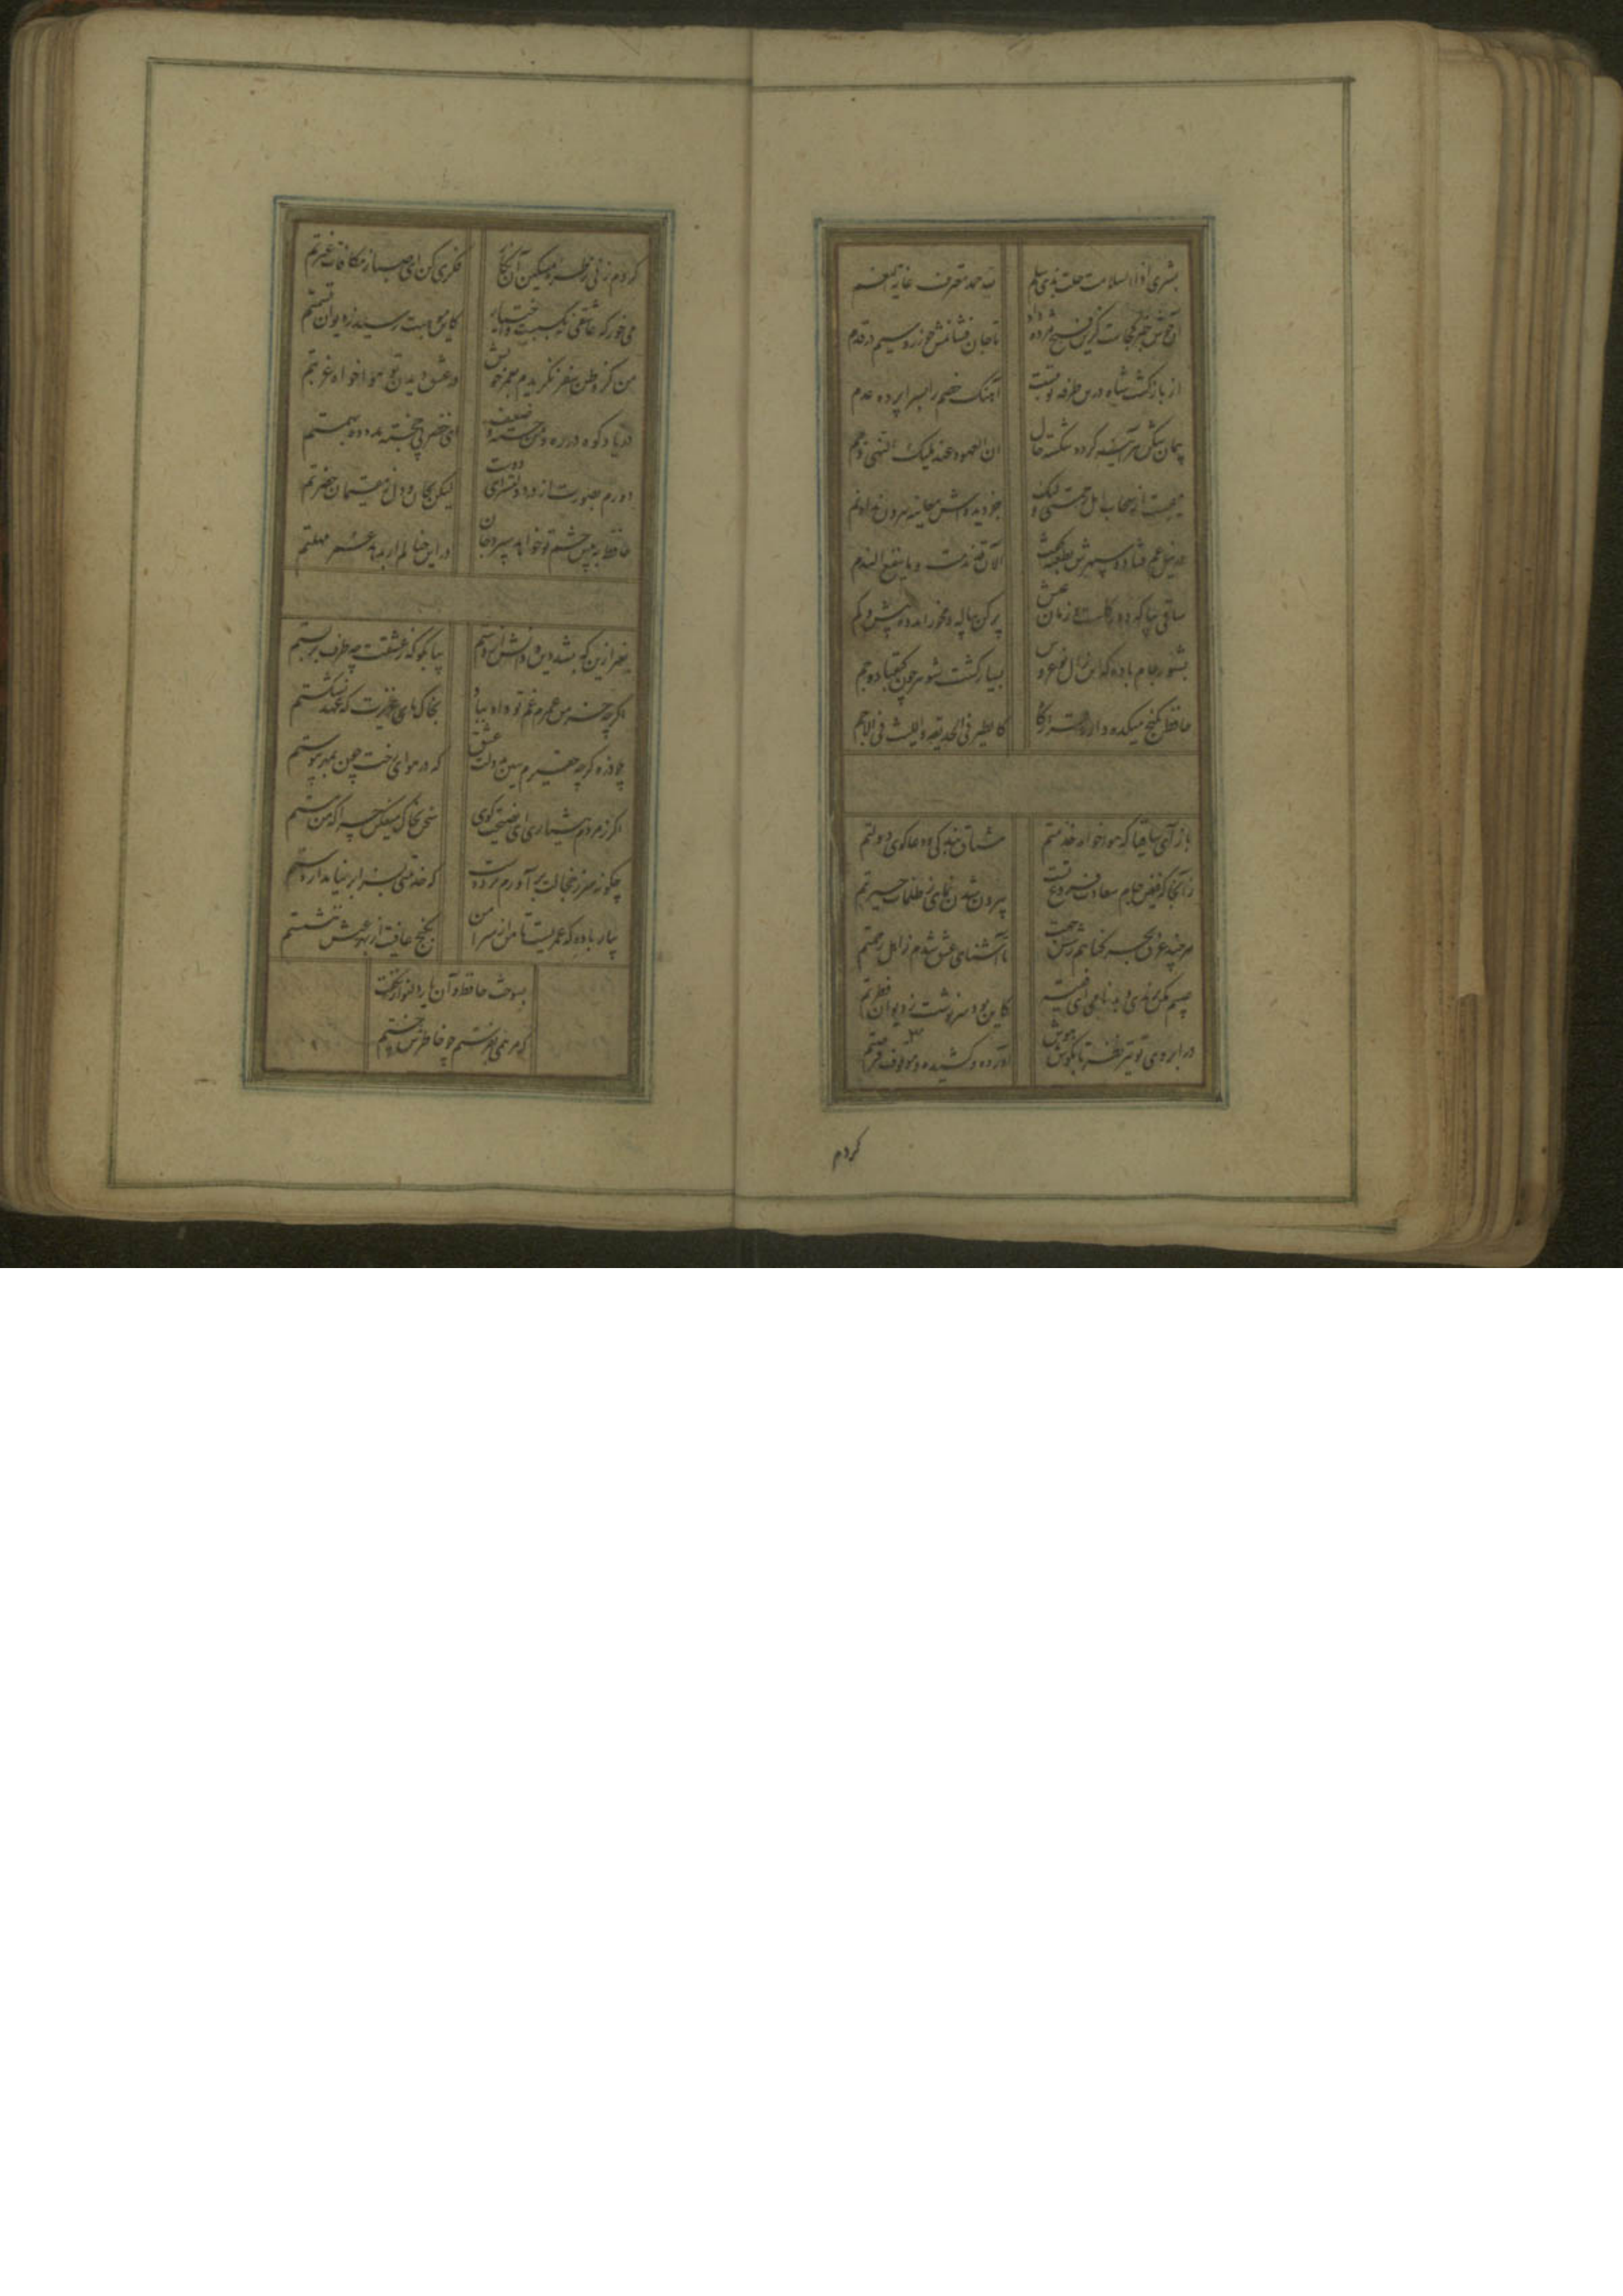 بشری اذ السلامت حلت بذی سلم
لله حمد معترف غایة النعم
آن خوش خبر کجاست کزین فتح مژده داد
تا جان فشانمش چو زر و سیم در قدم
از بازگشت شاه درین طرفه
آهنگ خصم را بسراپرده عدم
پیمان شکن هرآینه گردد شکسته حال
ان العهود عند ملیک النهی ذمم
میجست از سحاب امل رحمتی ولیک
جز دیده اش معاینه بیرون نداد نم
در نیل غم فتاد و سپهرش بطعنه گفت
الآن قد ندمت و ما ینفع الندم
ساقی بیا که دور کلست و زمان عیش
پر کن پیاله و مخور اندوه بیش و کم
بشنو ز جام باده که این زال نو عروس
بسیار کشت شوهر چون کیقباد و جم
حافظ بکنج میکده دارد قرارگاه
کالطیر فی الحدیقه و اللیث فی الاجم
باز آی ساقیا که هواخواه خدمتم
مشتاق بندگی و دعاگوی دولتم
زآنجا که فیض جام سعادت فروغ تست
بیرون شدن نمای ز ظلمات حیرتم
هرچند غرق بحر گناهم ز شش جهت
تا آشنای عشق شدم ز اهل رحمتم
عیبم مکن برندی و بدنامی ای فقیه
کاین بود سرنوشت ز دیوان فطرتم
در ابروی تو تیر نظر تا بگوش هوش
آورده و کشیده و موقوف فرصتم
کردم
فکری کن ای صبا ز مکافات غیرتم
می خور که عاشقی نه بکسبست و اختیار
کاین موهبت رسید ز دیوان قسمتم
من کز وطن سفر نگزیدم بعمر خویش
در عشق دیدن تو هواخواه غربتم
دریا و کوه در ره و من خسته و ضعیف
ای خضر پی خجسته مدد ده بهمتم
دورم بصورت از در دولتسرای دوست
لیکن بجان و دل ز مقیمان حضرتم
حافظ به پیش چشم تو خواهد سپرد جان
در این خیالم ار بدهد عمر مهلتم
بغیر ازین که بشد دین و دانش از دستم
بیا بگو که ز عشقت چه طرف بربستم
اگرچه خرمن عمرم غم تو داد بباد
بخاک پای عزیزت که عهد نشکستم
چو ذره گرچه حقیرم ببین بدولت عشق
که در هوای رخت چون بمهر پیوستم
اگر ز مردم هشیاری ای نصیحت گوی
سخن بخاک میفکن چرا که من مستم
چگونه سر ز خجالت برآورم بر دوست
که خدمتی بسزا بر نیامد از دستم
بیار باده که عمریست تا من از سر امن
بکنج عافیت از بهر عیش ننشستم
بسوخت حافظ و آن یار دلنواز نگفت
که مرهمی بفرستم چو خاطرش خستم